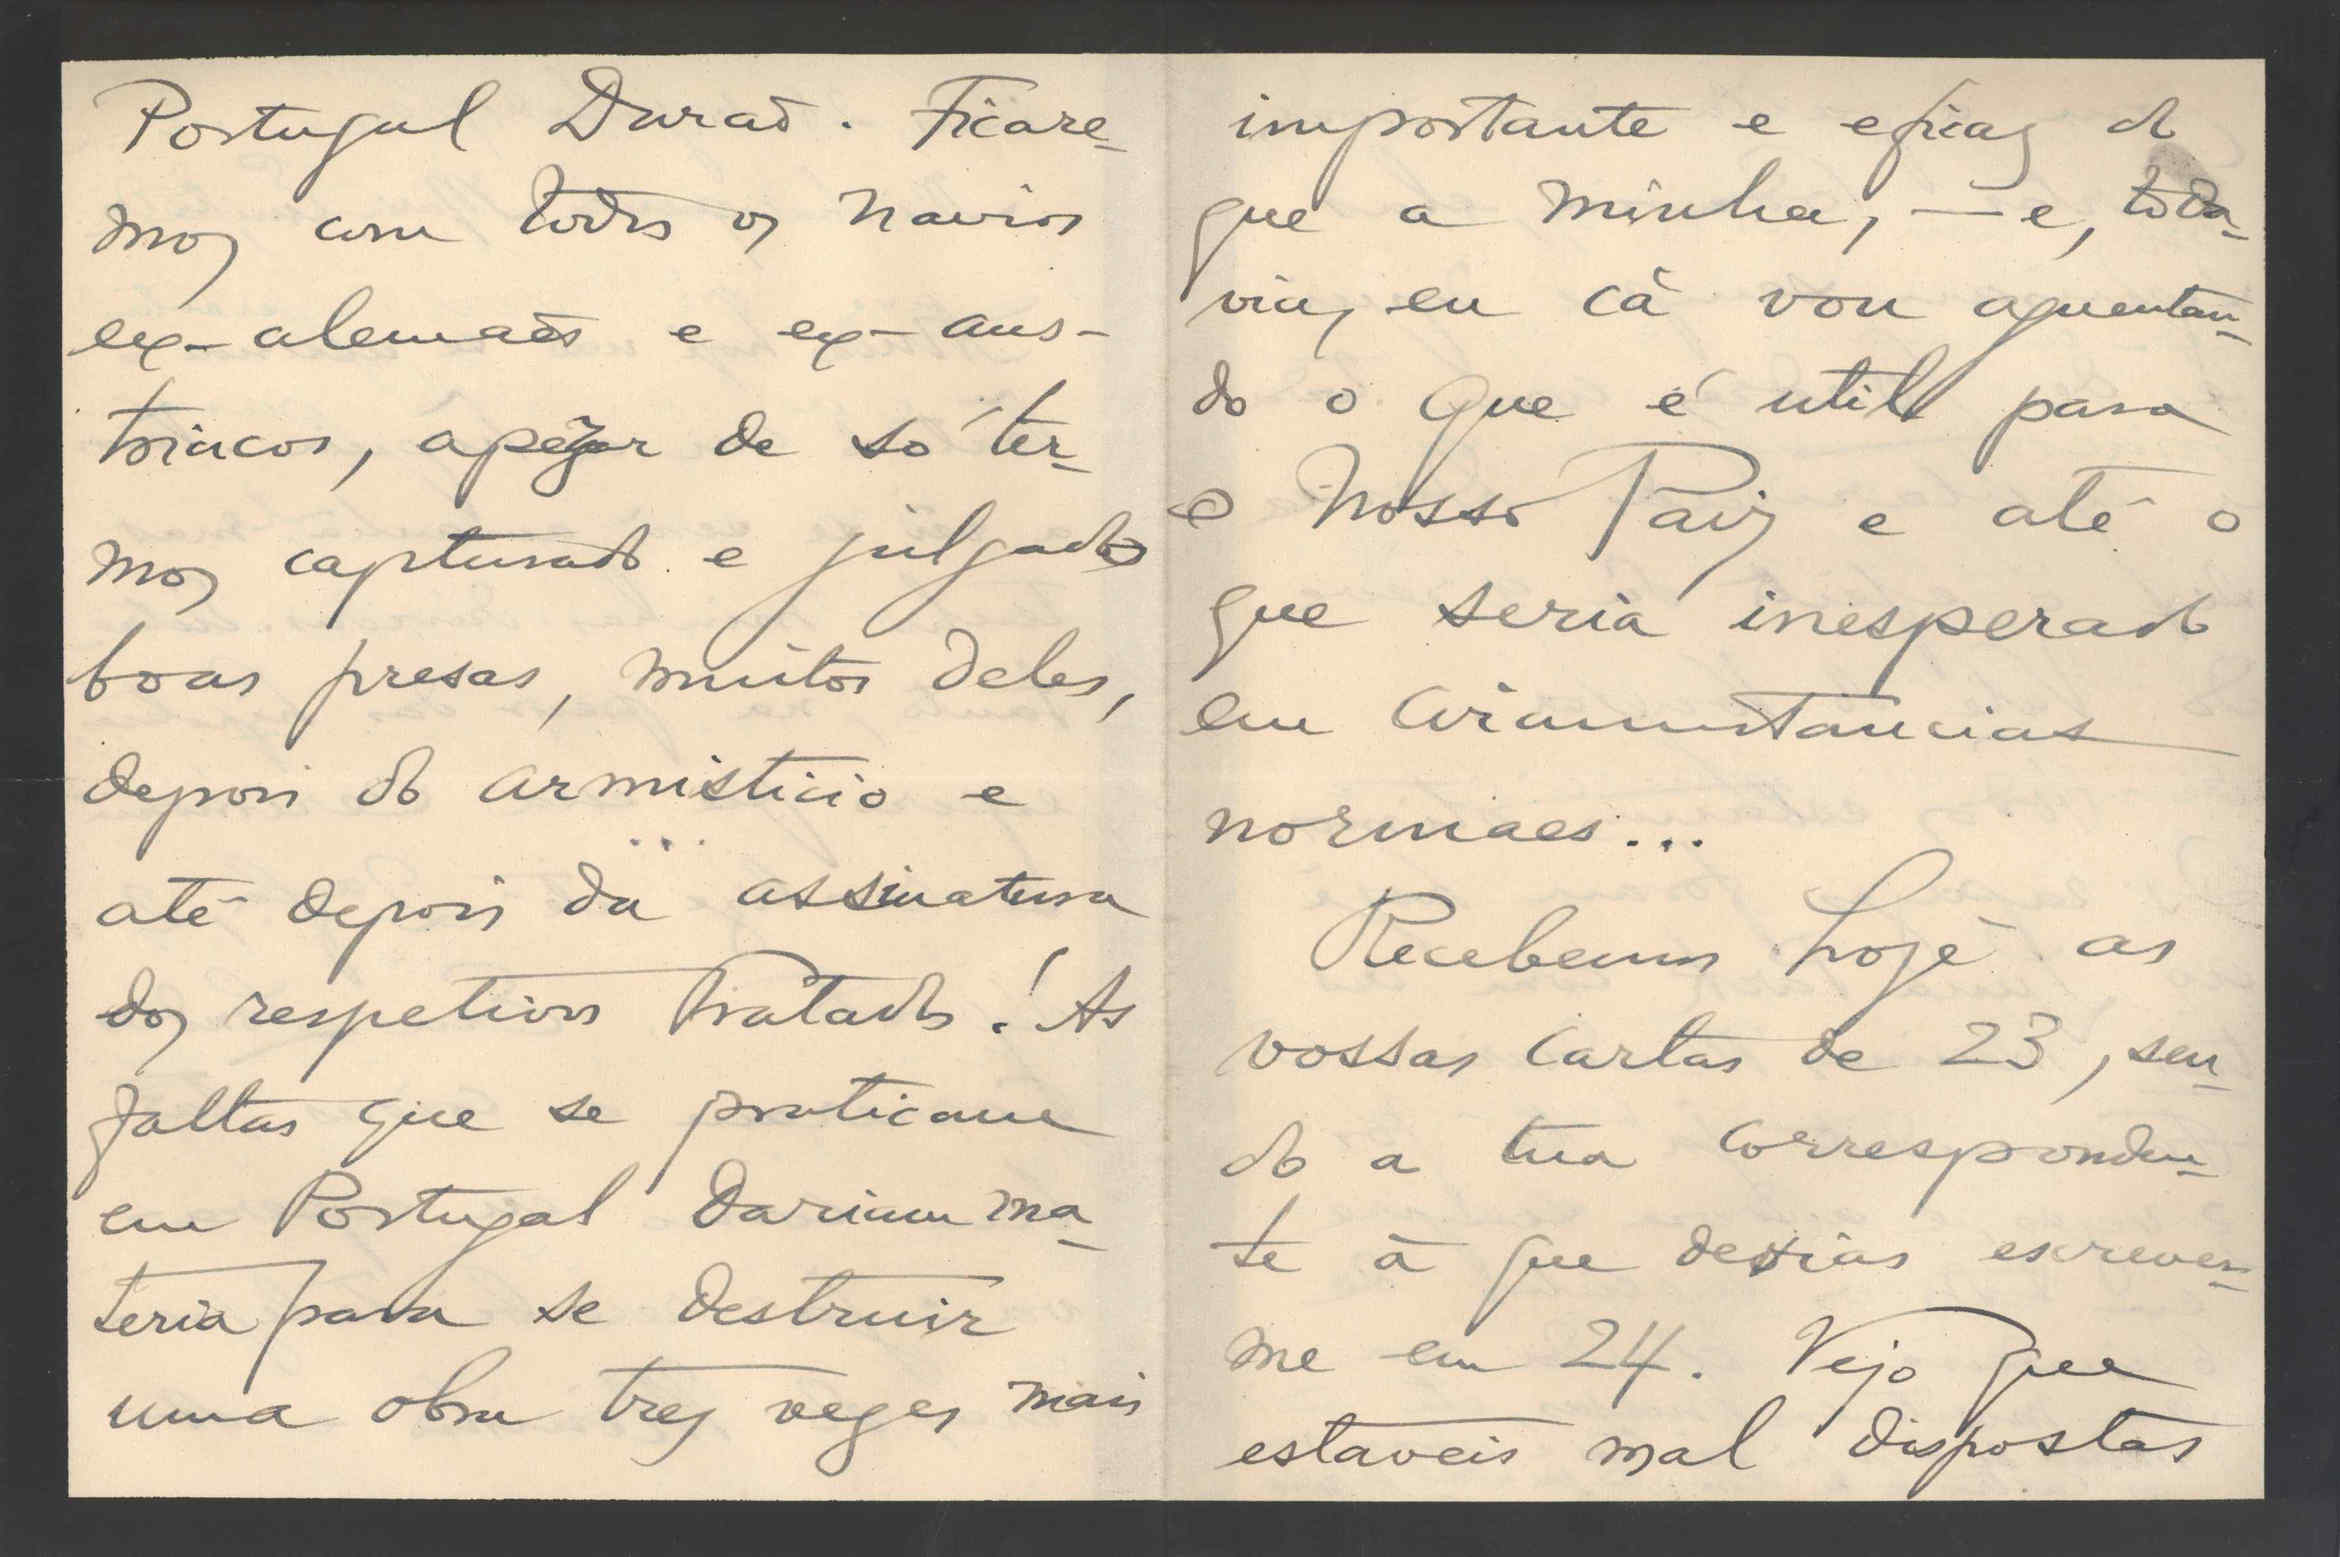 Portugal Durão. Ficare-
mos com todos os navios
ex-alemães e ex-aus-
triacos, apezar de só ter-
mos capturado e julgado
boas presas, muitos deles,
depois do armisticio e
até depois da... assinatura
dos respetivos Tratados! As
faltas que se praticam
em Portugal dariam ma-
teria para se destruir
uma obra tres vezes mais
importante e eficaz do
que a minha, — e, toda-
via, eu cá vou aguentan-
do o que é util para
o Nosso Paiz e até o
que seria inesperado
em circumstancias
normaes...
Recebemos hoje as
vossas cartas de 23, sen-
do a tua corresponden-
te á que devias escrever-
me em 24. Vejo que
estaveis mal dispostas